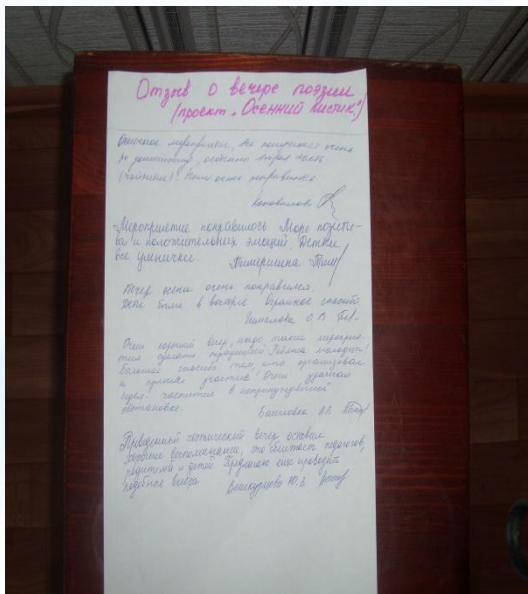 Отзыв о вечере поэзии
(проект "Осенний листик")
Отличное мероприятие, все получилось очень
по домашнему, особенно вторая часть
(чайная). Нам очень понравилось
Мероприятие понравилось. Море позити-
ва и положительных эмоций. Детки
все умнички.
Вечер осени очень понравился.
Дети были в восторге. Огромное спасибо
О. В.
Очень хороший вечер, надо такие мероприя-
тия сделать традицией. Ребята молодцы!
Большое спасибо тем, кто организовал
и принял участие! Очень удачная
идея: чаепитие в непринужденной
обстановке.
Проведенный поэтический вечер оставил
воспоминания, это сближает педагогов,
родителей и детей. Предлагаю еще проводить
подобные вечера Ю. В.